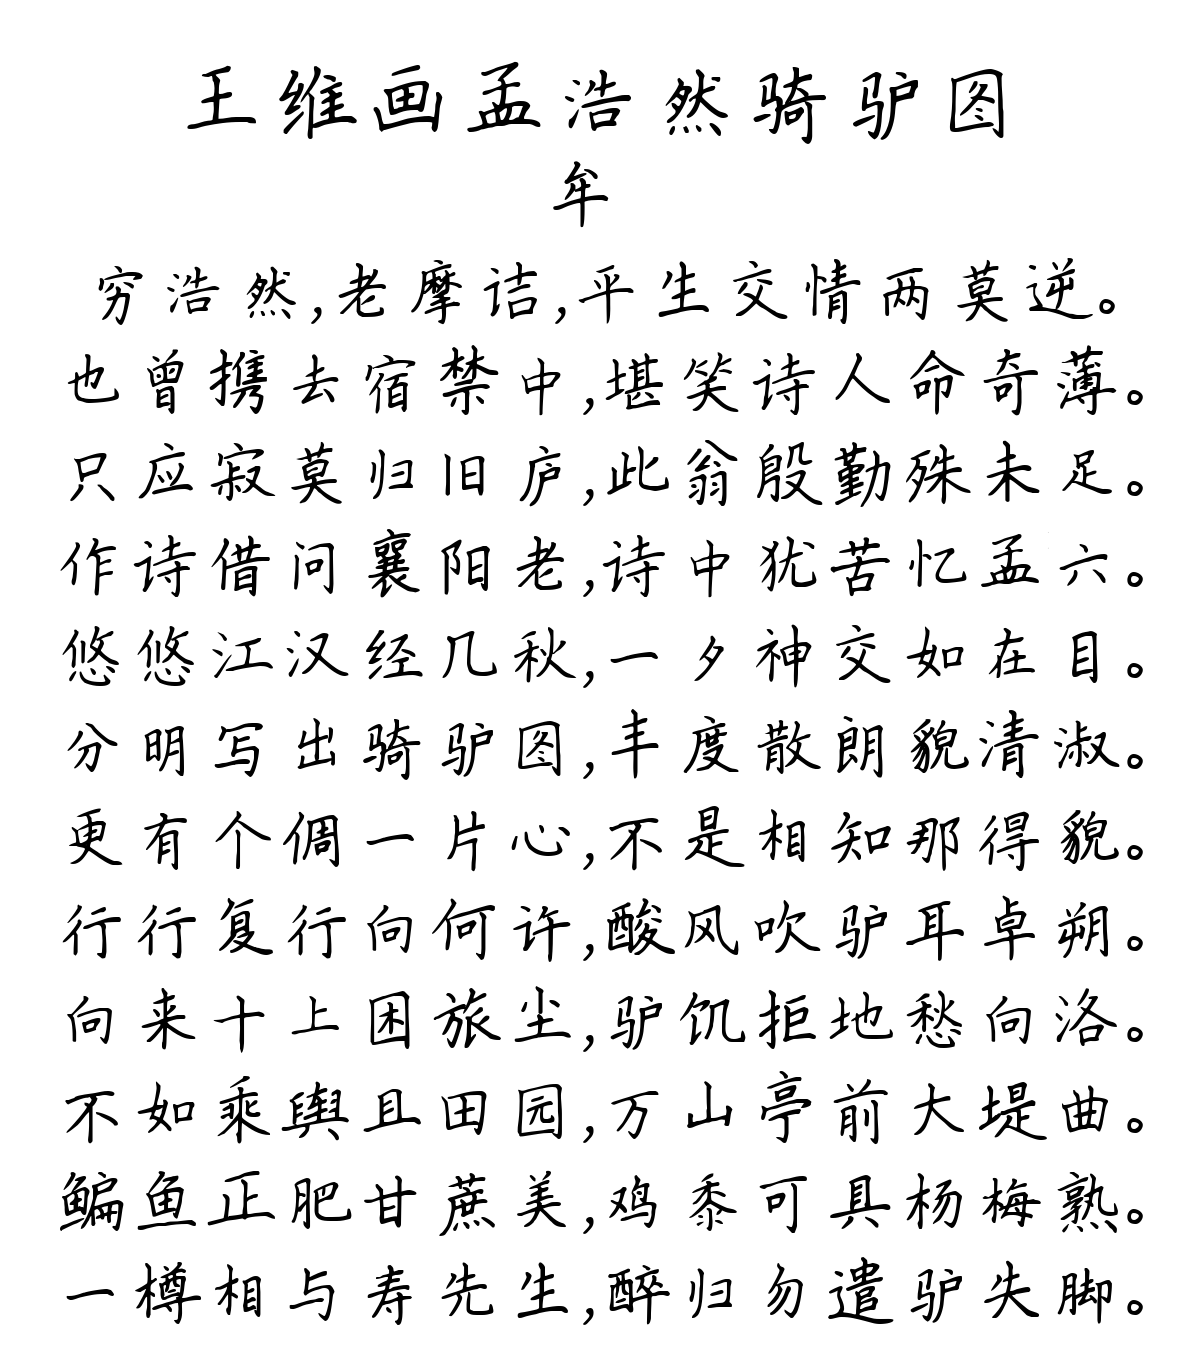 王维画孟浩然骑驴图
牟
穷浩然,老摩诘,平生交情两莫逆。
也曾携去宿禁中,堪笑诗人命奇薄。
只应寂莫归旧庐,此翁殷勤殊未足。
作诗借问襄阳老,诗中犹苦忆孟六。
悠悠江汉经几秋,一夕神交如在目。
分明写出骑驴图,丰度散朗貌清淑。
更有个倜一片心,不是相知那得貌。
行行复行向何许,酸风吹驴耳卓朔。
向来十上困旅尘,驴饥拒地愁向洛。
不如乘舆且田园,万山亭前大堤曲。
鳊鱼正肥甘蔗美,鸡黍可具杨梅熟。
一樽相与寿先生,醉归勿遣驴失脚。